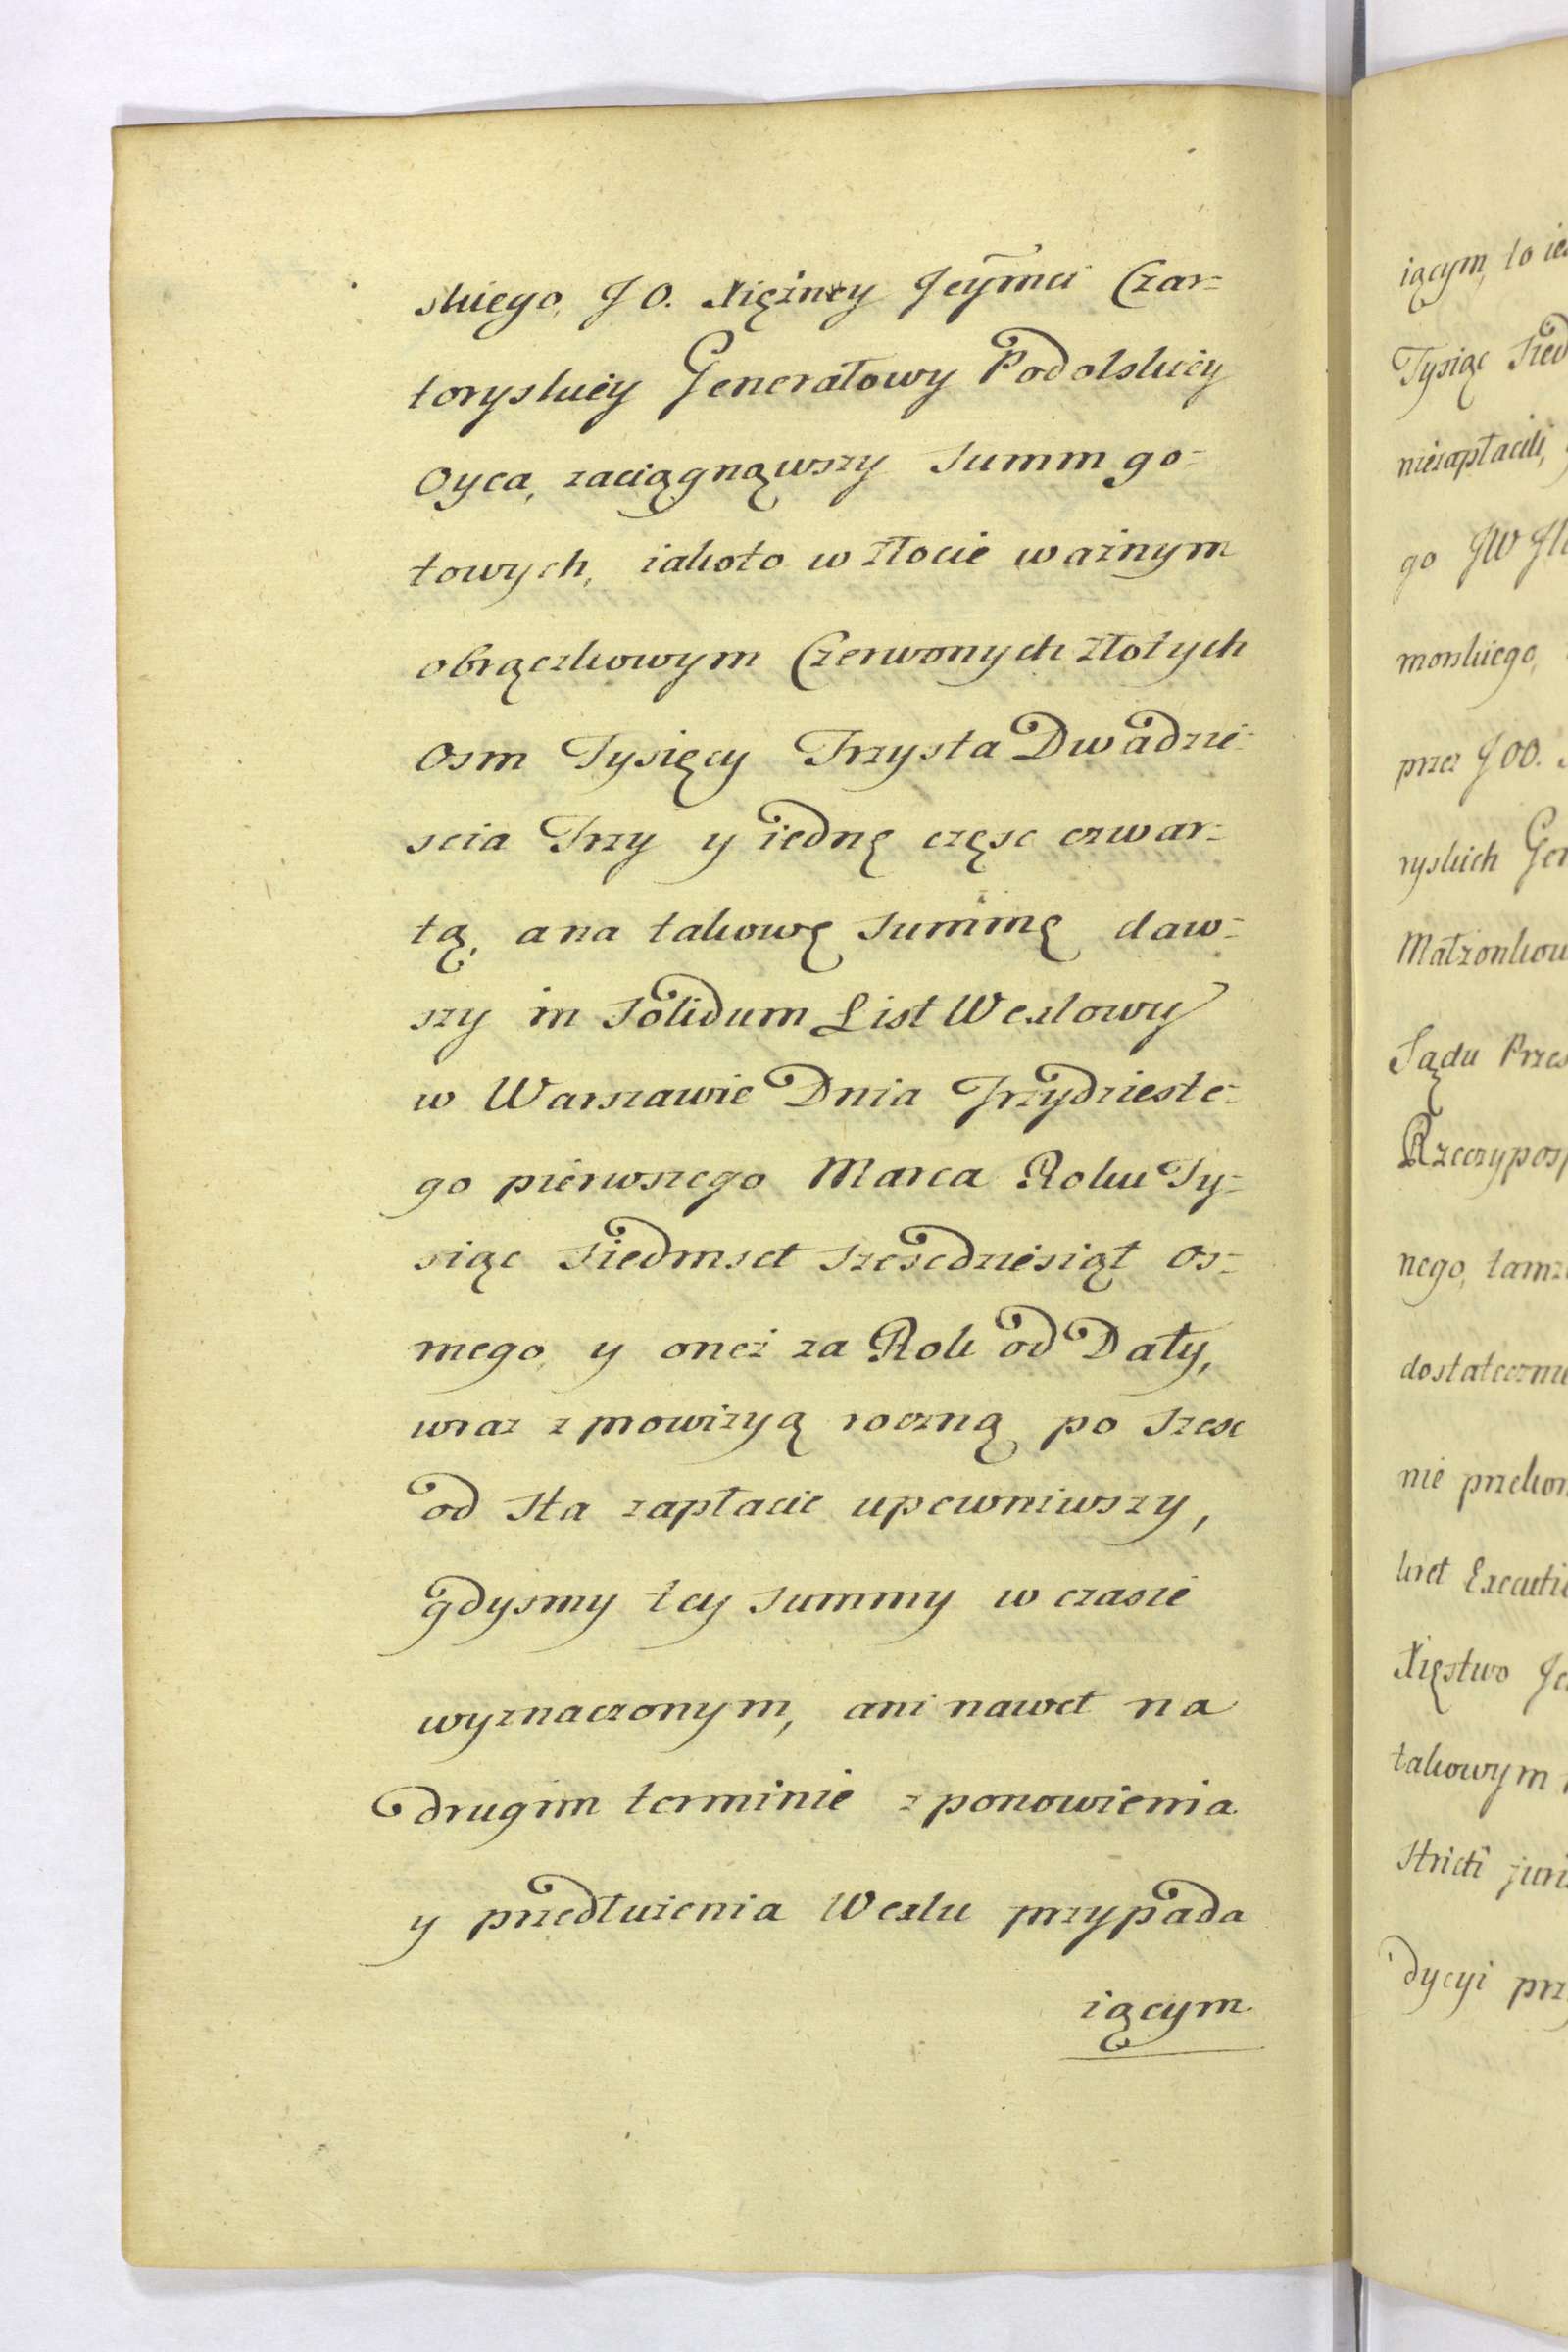 skiego, JO. Xiężney Jeymci Czar=
toryskiey Generałowy Podolskiey
Oyca, zaciągnąwszy Summ go=
towych, iakoto w złocie ważnym
obrączkowym Czerwonych złotych
Osm Tysięcy Trzysta Dwadzie=
scia Trzy y iednę częsc czwar=
tą, a na takowę Summę daw=
szy in Solidum List Wexlowy
w Warszawie Dnia Trzydzieste=
go pierwszego Marca Roku Ty=
siąc Siedmset szescdziesiąt os=
mego, y oneż za Rok od Daty,
wraz z prowizyą roczną po szesc
od sta zapłacic upewniwszy,
gdysmy tey Summy w czasie
wyznaczonym, ani nawet na
drugim terminie z ponowienia
y przedłużenia Wexlu przypada
iącym.
iącym, to ie
Tysiąc Sied
niezapłacili,
go JW
morskiego,
przez JOO.
ryskich Gen
Małżonkow
Sądu Przes
Rzeczyposp
nego, tamż
dostatecznie
nie przekon
kret Executi
Xięstwo Je
takowym
stricti juri
dycyi prz